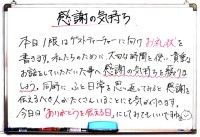 感謝の気持ち
本日1限はゲストティーチャーに向けお礼状を
書きます。私たちのために、大切な時間を使い、貴重な
お話をしていただいた事へ感謝の気持ちを綴りま
しょう。同時に、ふと日常を思い返してみると感謝を
伝えるべき人がたくさんいることにも気が付きます。
今日を「ありがとうを伝える日」にしてみてもいいですね